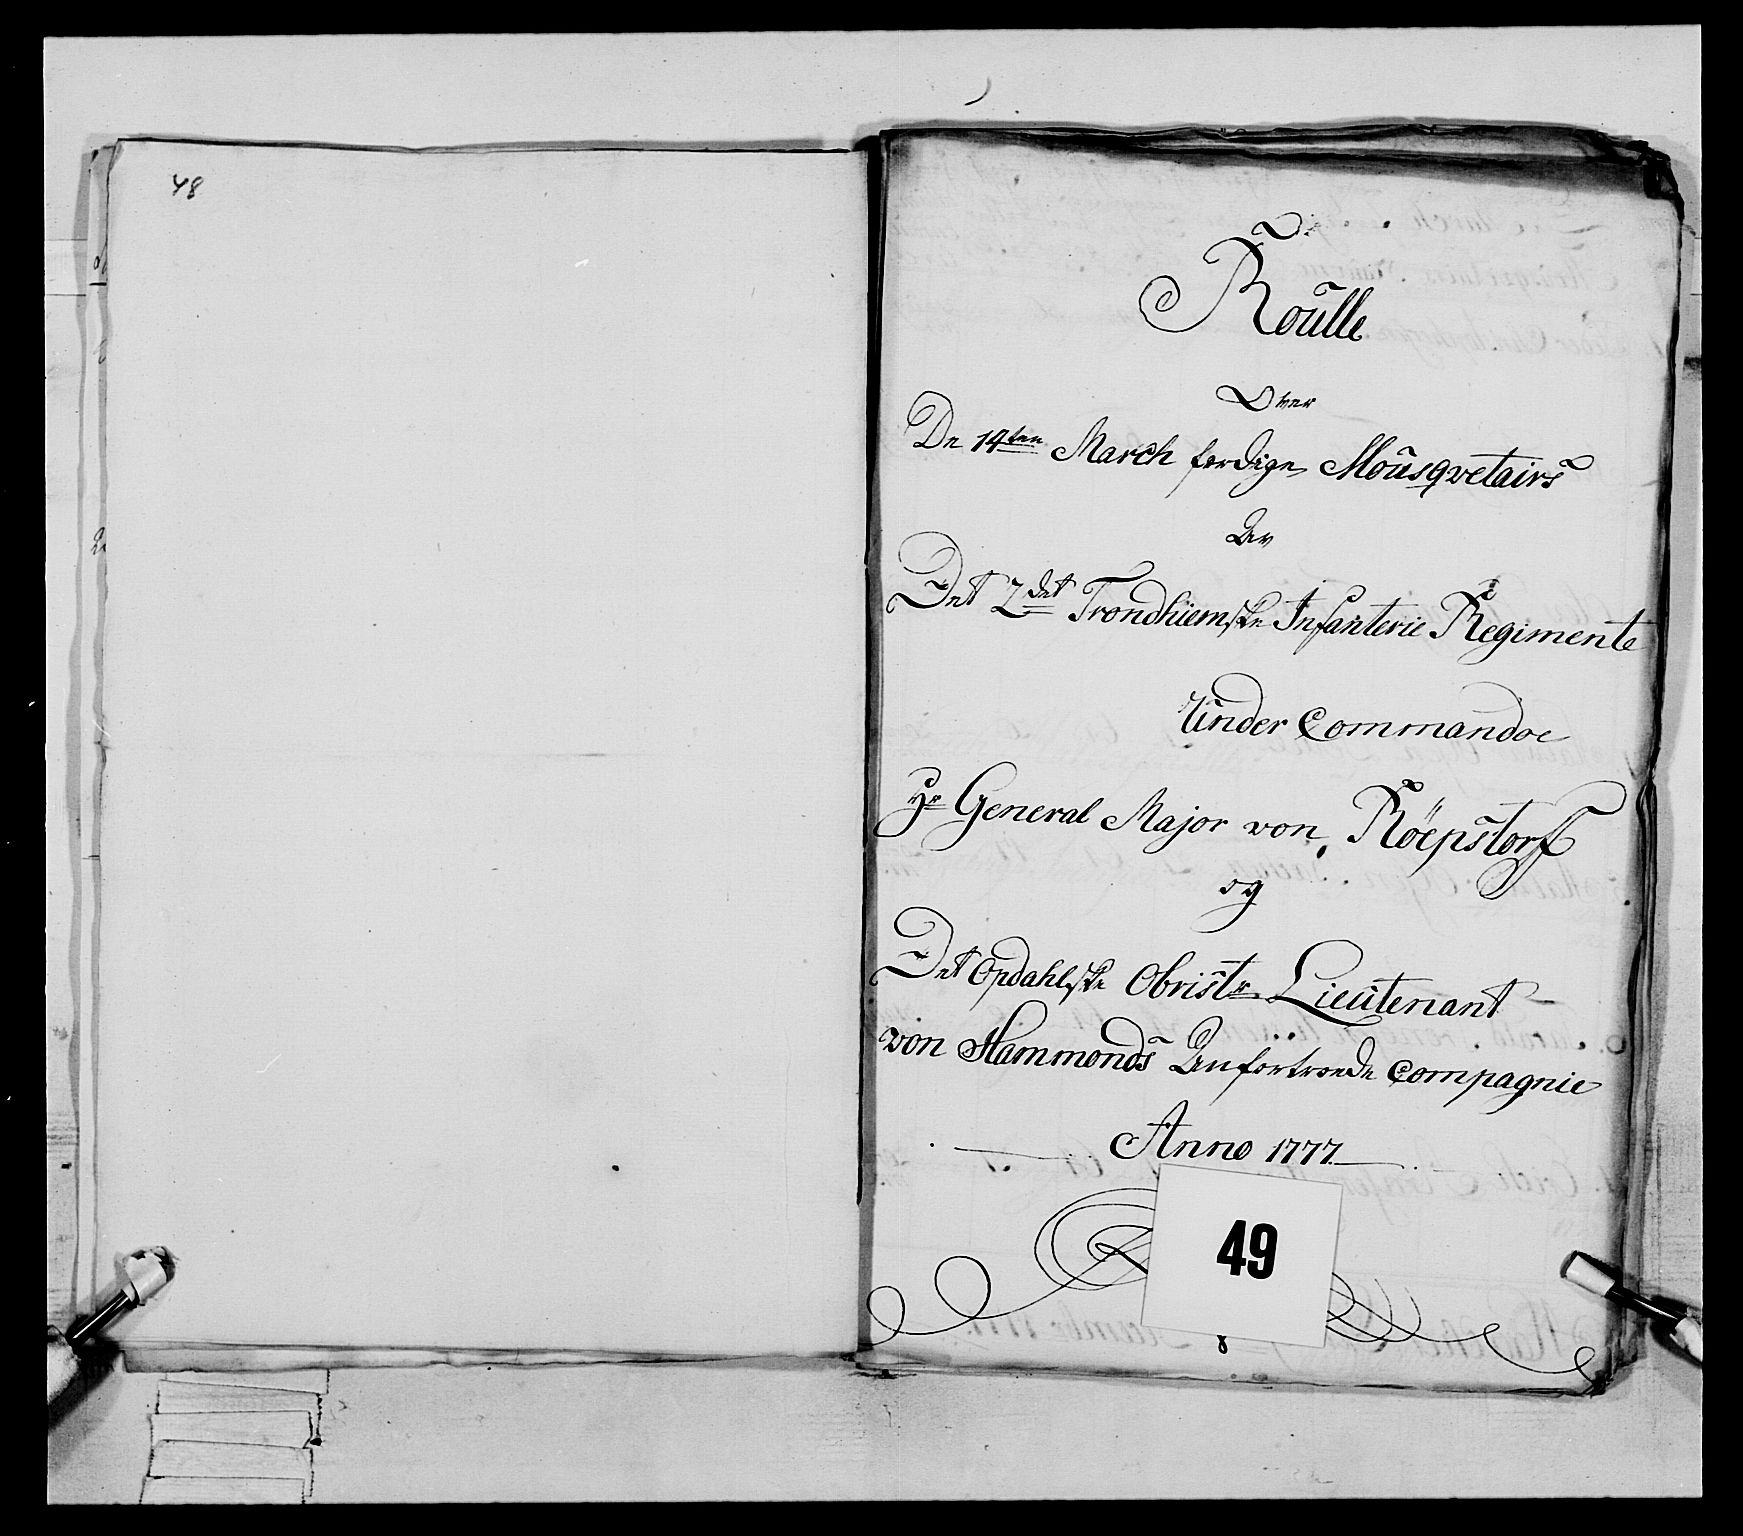 48
Roulle
Over
De 14ten March ferdige Mousqvetairs
Av
Det 2det Trondhiemske Infanterie Regimente
Under Commandoe
Hr General Major von Röepstorff
og
Det Opdahlske Obriste Lieutenant
von Hammonds Anfortroede Compagnie
Anno 1777
49
8